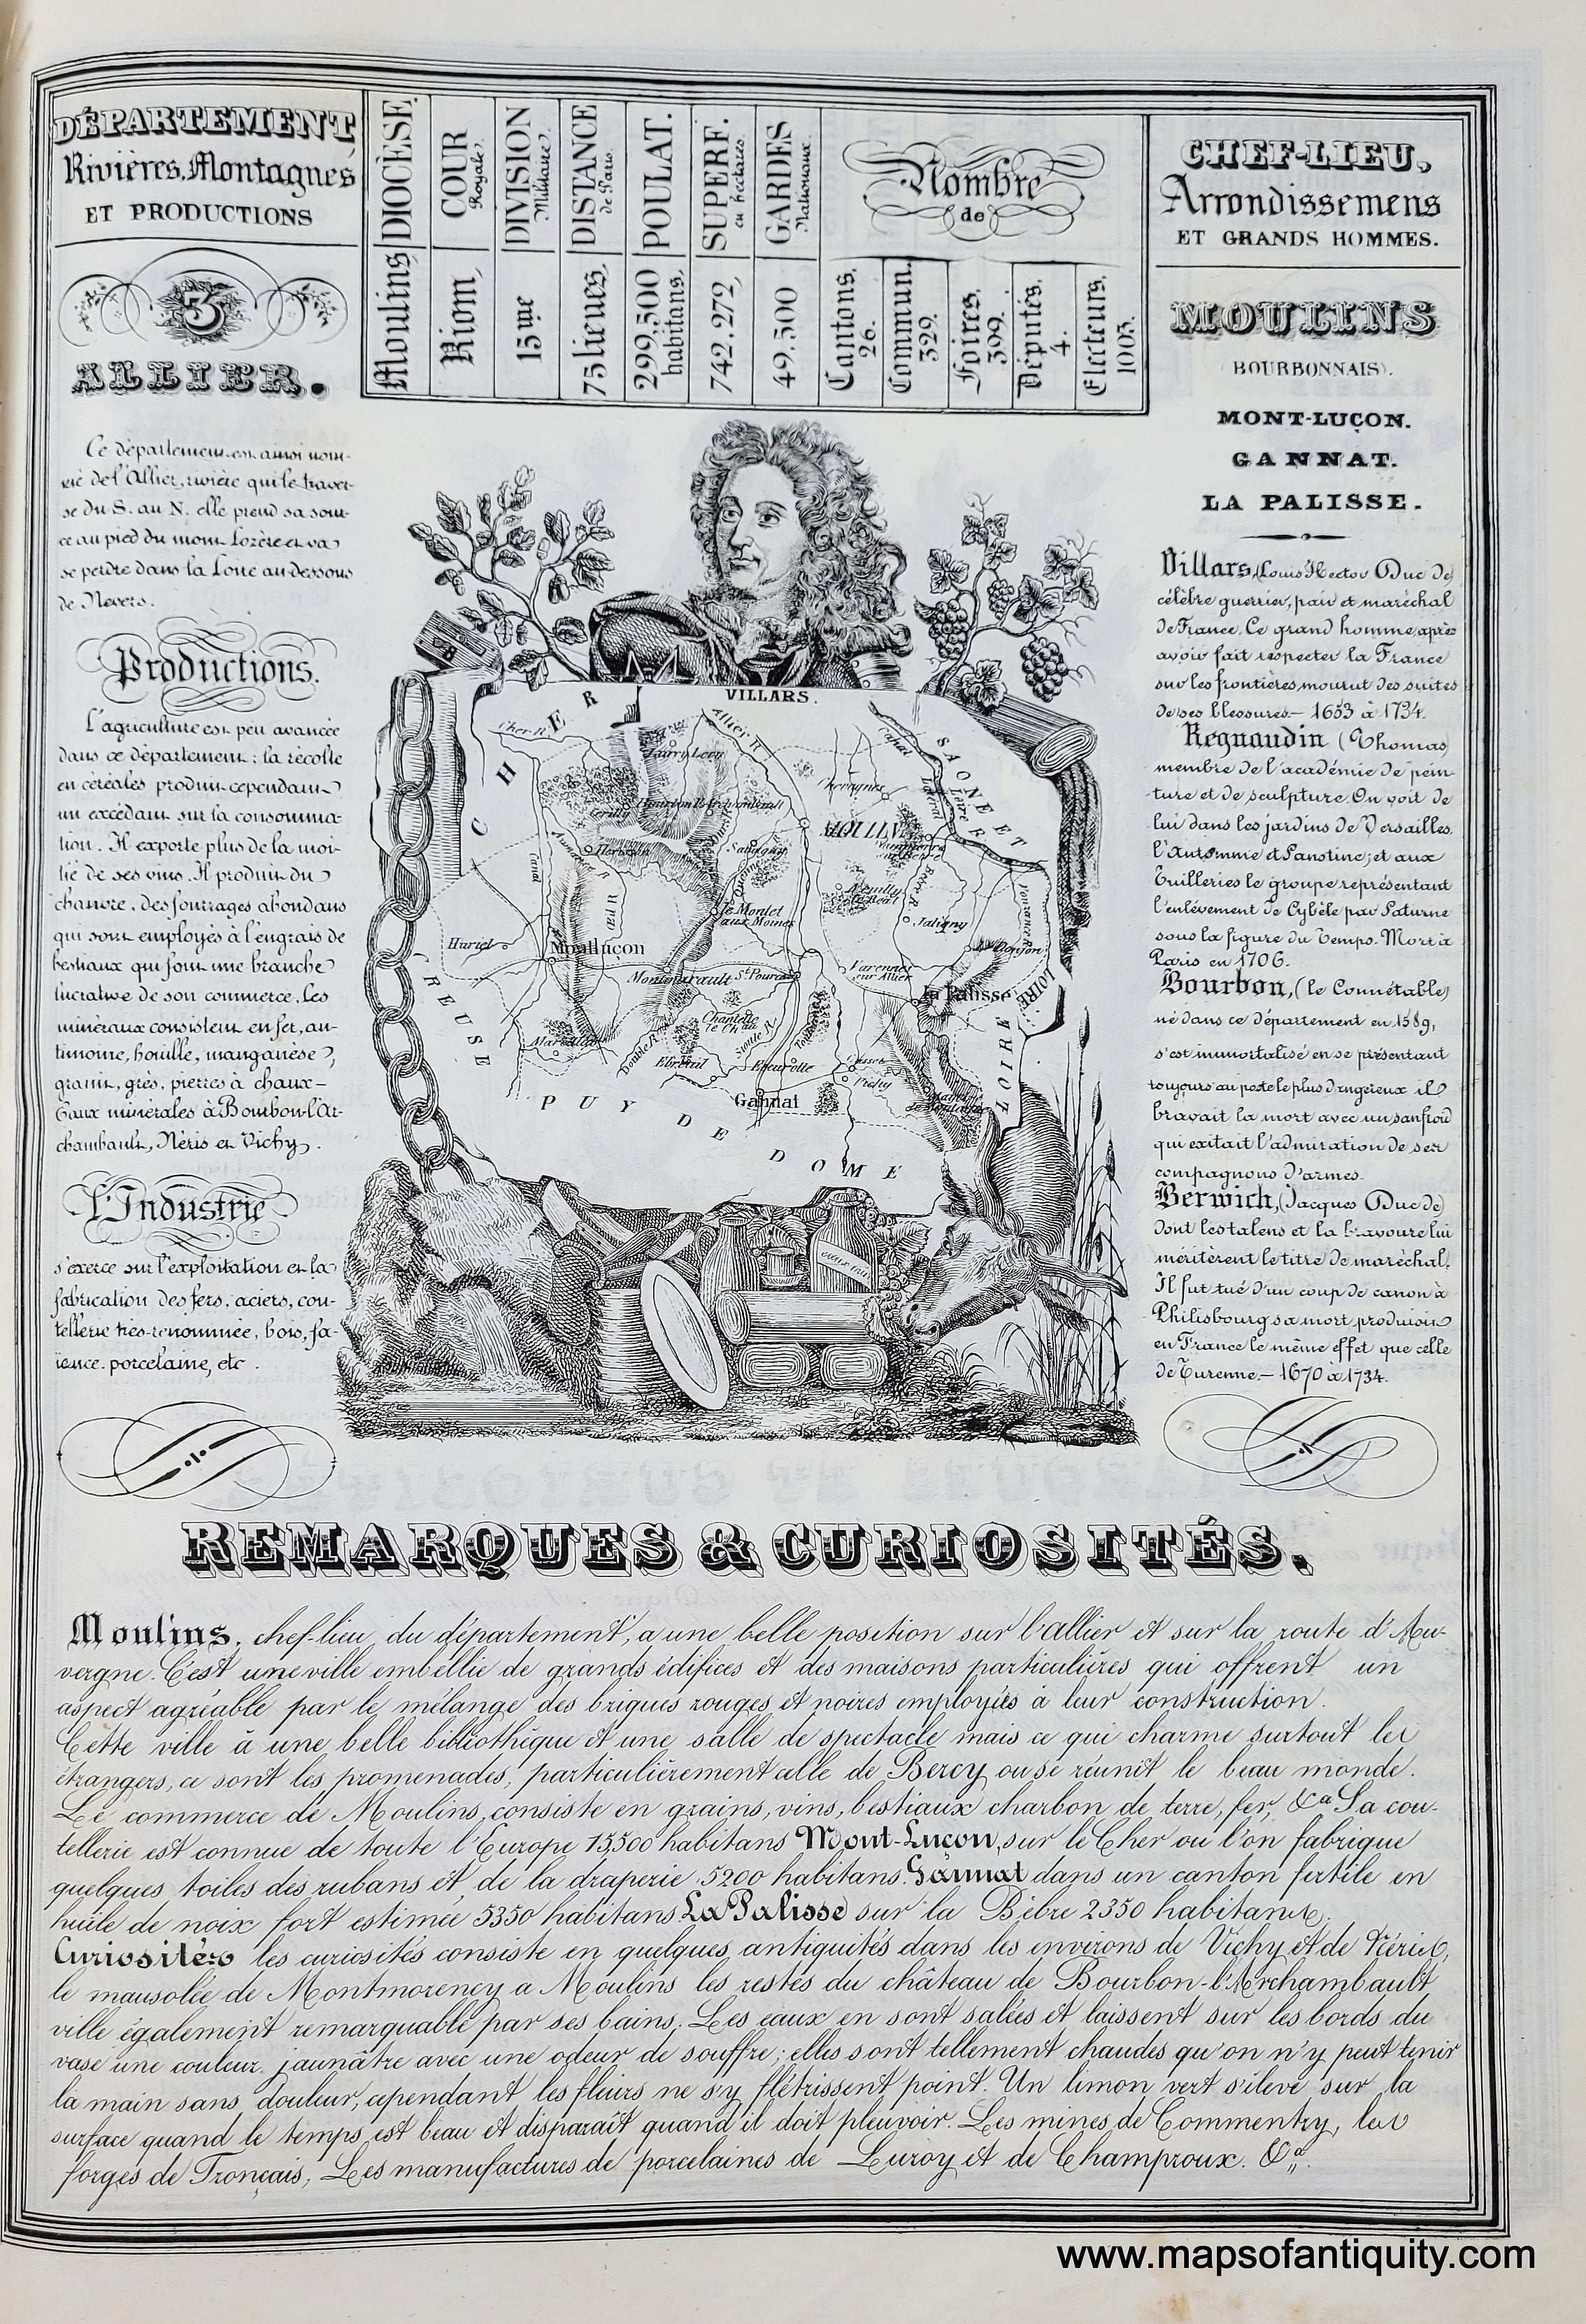 DÉPARTEMENT
Rivières, Montagnes
ET PRODUCTIONS
3
ALLIER.
DIOCÈSE
Moulins
COUR
Royale,
Riom,
DIVISION
Militaire,
15me
DISTANCE
de Paris.
75 lieues,
POULAT.
299,500
habitans,
SUPERF.
en hectares
742,272,
GARDES
Nationaux
49,500
Nombre
de
Cantons.
26.
Commun.
329.
Foires.
399.
Députés.
4.
Electeurs.
1003.
CHEF-LIEU,
Arrondissemens
ET GRANDS HOMMES.
MOULINS
(BOURBONNAIS).
MONT-LUÇON.
GANNAT.
LA PALISSE.
Ce département est ainsi nom-
mé de l'Allier, rivière qui le traver-
se du S. au N. elle prend sa sour-
ce au pied du mont Lozère et va
se perdre dans la Loire au-dessous
de Nevers.
Productions.
L'agriculture est peu avancée
dans ce département: la récolte
en céréales produit cependant
un excédant sur la consomma-
tion. Il exporte plus de la moi-
tié de ses vins. Il produit du
chanvre, des fourrages abondans
qui sont employés à l'engrais de
bestiaux qui font une branche
lucrative de son commerce. Les
minéraux consistent en fer, an-
timoine, houille, manganèse,
granit, grès, pierres à chaux –
Eaux minérales à Bourbon-l'Ar-
chambault, Néris et Vichy.
L'Industrie
s'exerce sur l'exploitation et la
fabrication des fers, aciers, cou-
tellerie très-renommée, bois, fa-
ïence, porcelaine, etc.
Villars, (Louis Hector Duc de)
célèbre guerrier, pair et maréchal
de France. Ce grand homme après
avoir fait respecter la France
sur les frontières mourut des suites
de ses blessures – 1653 à 1734.
Regnaudin (Thomas)
membre de l'académie de pein-
ture et de sculpture. On voit de
lui dans les jardins de Versailles,
l'Automne et Faustine; et aux
Tuilleries le groupe représentant
l'enlévement de Cybèle par Saturne
sous la figure du Temps. Mort à
Paris en 1706.
Bourbon, (le Connétable)
né dans ce département en 1589,
s'est immortalisé en se présentant
toujours au poste le plus dangereux il
bravait la mort avec un sanfroid
qui exitait l'admiration de ses
compagnons d'armes.
Berwich, (Jacques Duc de)
dont les talens et la bravoure lui
méritèrent le titre de maréchal.
Il fut tué d'un coup de canon à
Philisbourg sa mort produisit
en France le même effet que celle
de Turenne. – 1670 à 1734.
VILLARS.
CHER
Cher R.
Allier R.
Canal
SAONE ET
LOIRE
Lurcy Levy
Bourbon l'Archambault
Cerilly
Chevagnes
MOULINS
Hérisson
Souvigny
le Montet
aux Moines
Neuilly
le Réal
Jaligny
Huriel
Montluçon
le Donjon
Montmarault
St Pourcain
Varennes
sur Allier
La Palisse
CREUSE
Chantelle
le Chau
Marcillat
Ebreuil
Escurolle
Cusset
Vichy
Gannat
PUY DE DOME
LOIRE
REMARQUES & CURIOSITÉS.
Moulins, chef-lieu du département, a une belle position sur l'allier et sur la route d'Au-
vergne. C'est une ville embellie de grands édifices et des maisons particulières qui offrent un
aspect agréable par le mélange des briques rouges et noires employées à leur construction.
Cette ville à une belle bibliothèque et une salle de spectacle mais ce qui charme surtout les
étrangers, ce sont les promenades, particulièrement celle de Bercy ou se réunit le beau monde.
Le commerce de Moulins, consiste en grains, vins, bestiaux charbon de terre, fer, &a Sa cou-
tellerie est connue de toute l'Europe 15,500 habitans Mont-Luçon, sur le Cher ou l'on fabrique
quelques toiles des rubans et de la draperie 5200 habitans. Gannat dans un canton fertile en
huile de noix fort estimée 5350 habitans La Palisse sur la Bèbre 2350 habitants.
Curiosités les curiosités consiste en quelques antiquités dans les environs de Vichy et de Néris,
le mausolée de Montmorency a Moulins les restes du château de Bourbon-l'Archambault
ville également remarquable par ses bains. Les eaux en sont salées et laissent sur les bords du
vase une couleur jaunâtre avec une odeur de souffre; elles sont tellement chaudes qu'on n'y peut tenir
la main sans douleur, cependant les fleurs ne s'y flétrissent point. Un limon vert s'élève sur la
surface quand le temps est beau et disparaît quand il doit pleuvoir. Les mines de Commentry, les
forges de Tronçais, Les manufactures de porcelaines de Luroy et de Champroux. &a.
www.mapsofantiquity.com